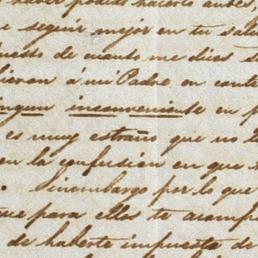 haber podido hacerlo antes,
seguir mejor en tu salu
de cuanto me dices s
á mi Padre en cont
ingun inconveniente en p
es muy estraño que no l
en la confusion en que
Sinembargo por lo que
que para elles te acomp
de haberte impuesto de